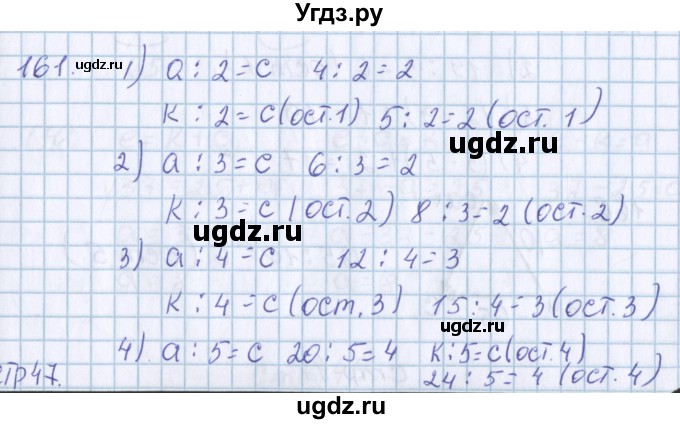 Угдз.ру
161. ugdz.ru 1) а : 2 = с 4 : 2 = 2
к : 2 = с (ост. 1) 5 : 2 = 2 (ост. 1)
2) а : 3 = с 6 : 3 = 2
к : 3 = с (ост. 2) 8 : 3 = 2 (ост. 2)
ugdz.ru
3) а : 4 = с 12 : 4 = 3
к : 4 = с (ост. 3) 15 : 4 = 3 (ост. 3)
ugdz.ru
4) а : 5 = с 20 : 5 = 4 к : 5 = с (ост. 4)
стр 47. 24 : 5 = 4 (ост. 4)
ugdz.ru